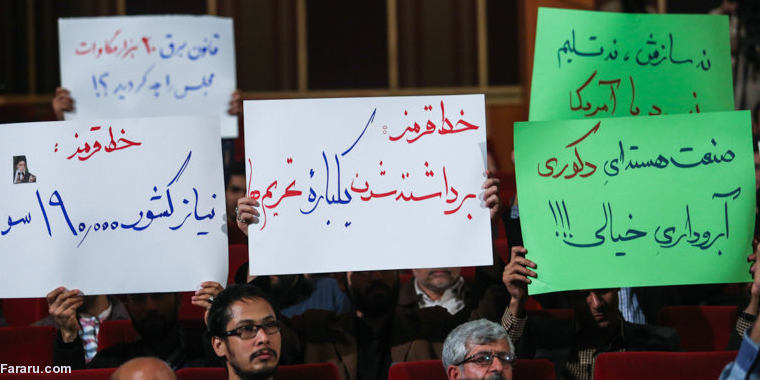 قانون برق ۲۰ هزار مگاوات
مجلس را چه کردید ؟!
نه سازش ، نه تسلیم
نبرد با آمریکا
خط قرمز :
نیاز کشور
۱۹۰٫۰۰۰ سو
خط قرمز :
برداشته شدن یکبارهٔ تحریم‌ها
صنعت هسته‌ایِ دکوری
آبروداریِ خیالی !!!
Fararu.com